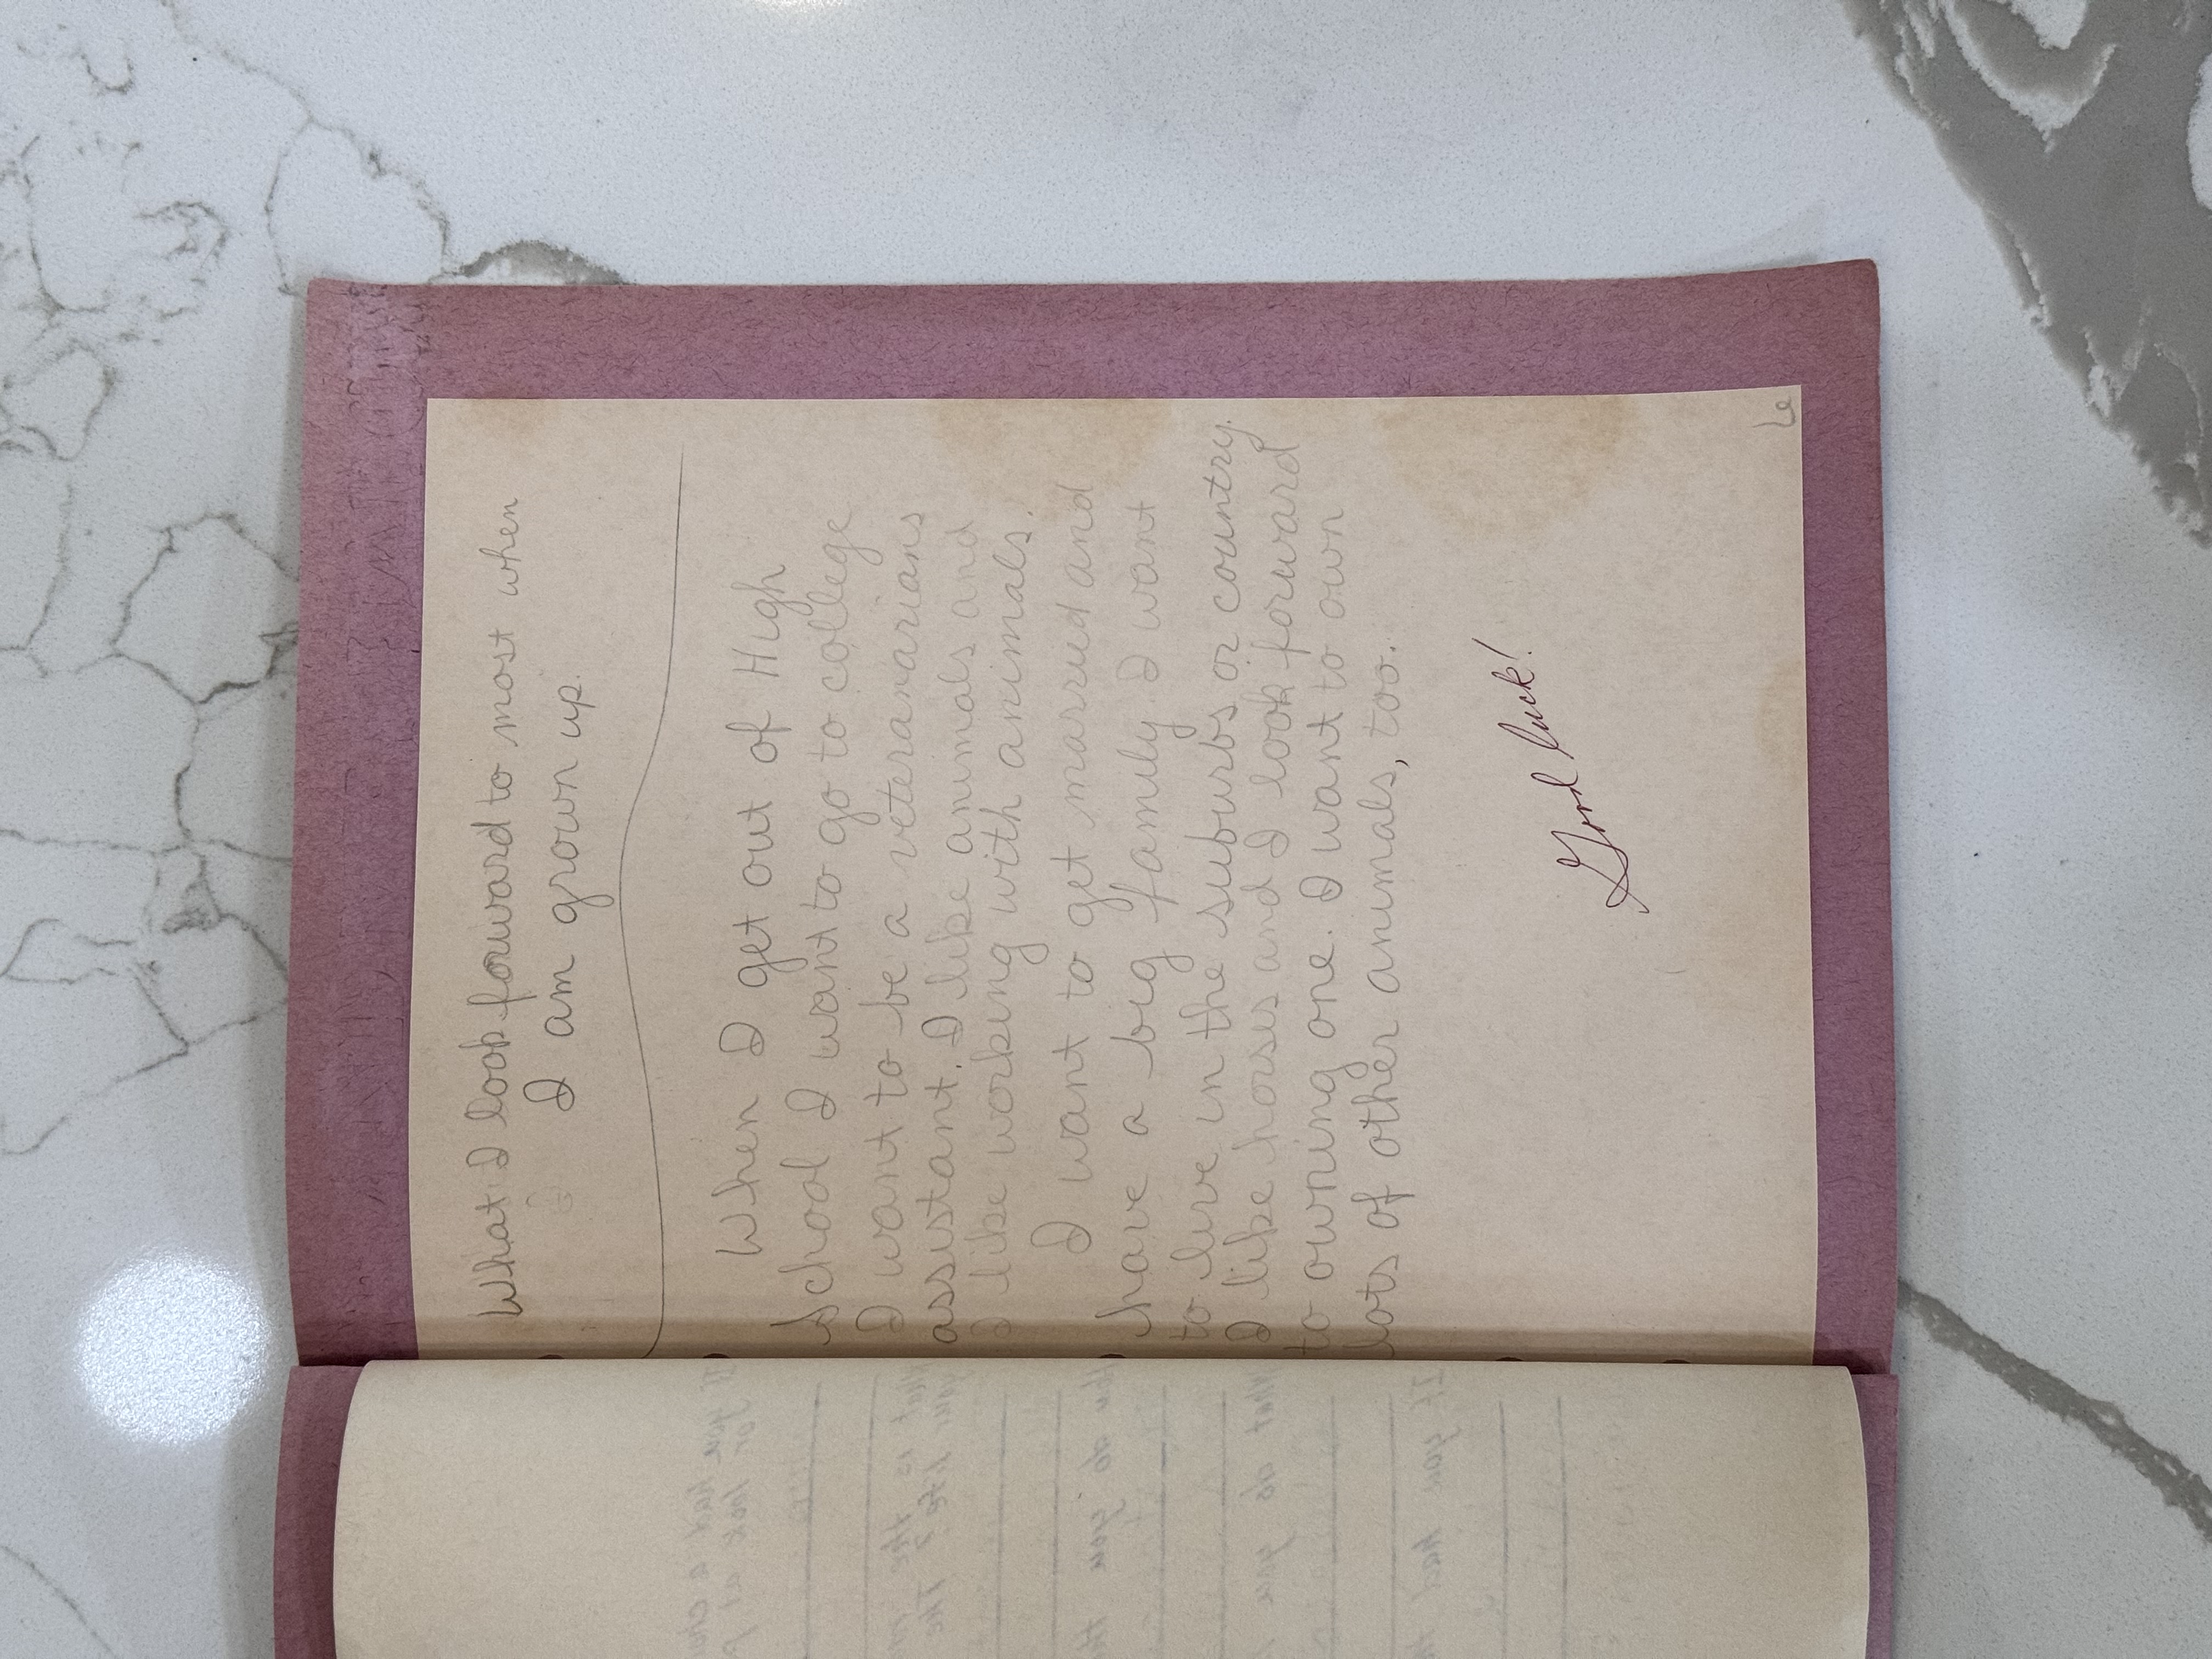 What I look forward to most when
I am grown up.
When I get out of High
School I want to go to college
I want to be a veteranarians
assistant. I like animals and
I like working with animals.
I want to get married and
have a big family. I want
to live in the suburbs or country.
I like horses and I look forward
to owning one. I want to own
lots of other animals, too.
Good luck!